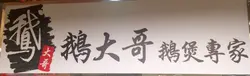 鵝
大哥
鵝大哥 鵝煲專家